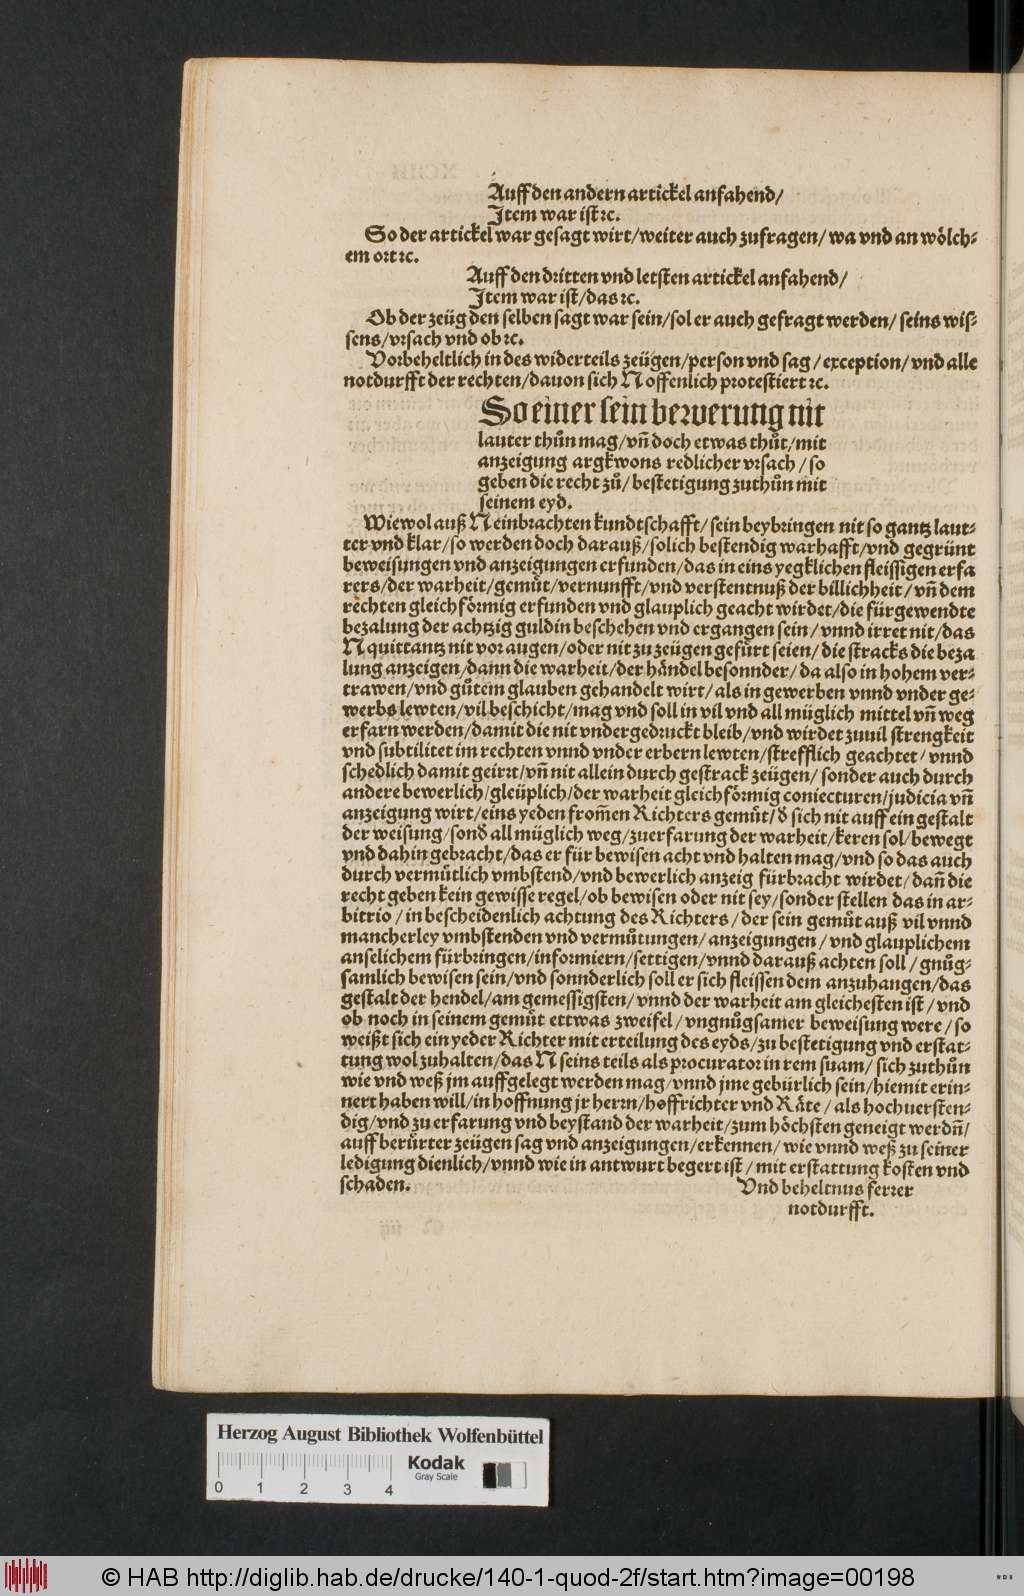 Auff den andern artickel anfahend/
Jtem war ist ꝛc.
So der artickel war gesagt wirt/weiter auch zufragen/ wa vnd an wölch⸗
em ort ꝛc.
Auff den dritten vnd letsten artickel anfahend/
Jtem war ist/das ꝛc.
Ob der zeüg den selben sagt war sein/sol er auch gefragt werden/ seins wis⸗
sens/vrsach vnd ob ꝛc.
Vorbeheltlich in des widerteils zeügen/person vnd sag / exception/ vnd alle
notdurfft der rechten/dauon sich N offenlich protestiert ꝛc.
So einer sein bewerung nit
lauter thůn mag/vñ doch etwas thůt/mit
anzeigung argkwons redlicher vrsach / so
geben die recht zů/ bestetigung zuthůn mit
seinem eyd.
Wiewol auß N einbrachten kundtschafft/ sein beybringen nit so gantz laut⸗
ter vnd klar/so werden doch darauß/solich bestendig warhafft/vnd gegrünt
beweisungen vnd anzeigungen erfunden/das in eins yegklichen fleissigen erfa
rers/der warheit/gemůt/vernunfft/vnd verstentnuß der billichheit/ vñ dem
rechten gleichförmig erfunden vnd glauplich geacht wirdet/die fürgewendte
bezalung der achtzig guldin beschehen vnd ergangen sein/ vnnd irret nit/das
N quittantz nit vor augen/oder nit zu zeügen gefürt seien/ die stracks die beza
lung anzeigen/dann die warheit/der händel besonnder/ da also in hohem ver⸗
trawen/vnd gůtem glauben gehandelt wirt/ als in gewerben vnnd vnder ge⸗
werbs lewten/vil beschicht/mag vnd soll in vil vnd all müglich mittel vñ weg
erfarn werden/damit die nit vndergedruckt bleib/vnd wirdet zuuil strengkeit
vnd subtilitet im rechten vnnd vnder erbern lewten/strefflich geachtet / vnnd
schedlich damit geirrt/vñ nit allein durch gestrack zeügen/ sonder auch durch
andere bewerlich/gleüplich/der warheit gleichförmig coniecturen/judicia vñ
anzeigung wirt/eins yeden from̃en Richters gemůt/ď sich nit auff ein gestalt
der weisung/sonď all müglich weg/zuerfarung der warheit/keren sol/bewegt
vnd dahin gebracht/das er für bewisen acht vnd halten mag/vnd so das auch
durch vermůtlich vmbstend/vnd bewerlich anzeig fürbracht wirdet/dañ die
recht geben kein gewisse regel/ob bewisen oder nit sey/sonder stellen das in ar⸗
bitrio / in bescheidenlich achtung des Richters / der sein gemůt auß vil vnnd
mancherley vmbstenden vnd vermůtungen/ anzeigungen / vnd glauplichem
anselichem fürbringen/informiern/settigen/vnnd darauß achten soll / gnůg⸗
samlich bewisen sein/vnd sonnderlich soll er sich fleissen dem anzuhangen/das
gestalt der hendel/am gemessigsten/ vnnd der warheit am gleichesten ist / vnd
ob noch in seinem gemůt ettwas zweifel/ vngnůgsamer beweisung were / so
weißt sich ein yeder Richter mit erteilung des eyds/zu bestetigung vnd erstat⸗
tung wol zuhalten/das N seins teils als procurator in rem suam/ sich zuthůn
wie vnd weß jm auffgelegt werden mag/vnnd jme gebürlich sein/hiemit erin⸗
nert haben will/in hoffnung jr herrn/hoffrichter vnd Räte / als hochuersten⸗
dig/vnd zu erfarung vnd beystand der warheit/zum höchsten geneigt werdñ/
auff berůrter zeügen sag vnd anzeigungen/erkennen/ wie vnnd weß zu seiner
ledigung dienlich/vnnd wie in antwurt begert ist/ mit erstattung kosten vnd
schaden. Vnd beheltnus ferrer
notdurfft.
Herzog August Bibliothek Wolfenbüttel
Kodak
Gray Scale
0 1 2 3 4
© HAB http://diglib.hab.de/drucke/140-1-quod-2f/start.htm?image=00198